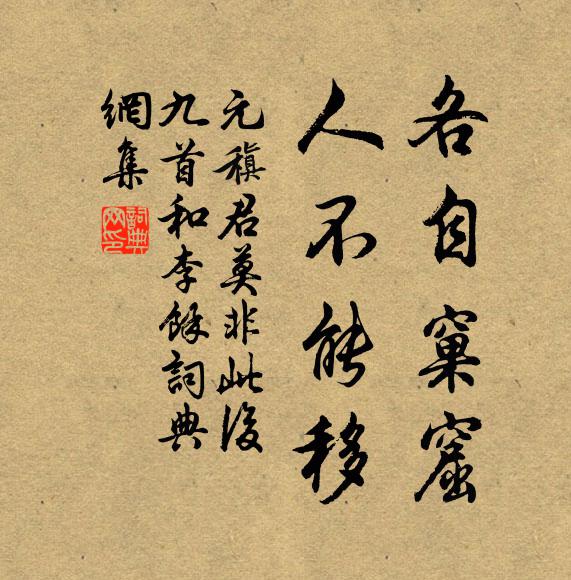 各自窠窟
人不能移
元稹君莫非此後
九首和李餘詞典
網集
詞典網印